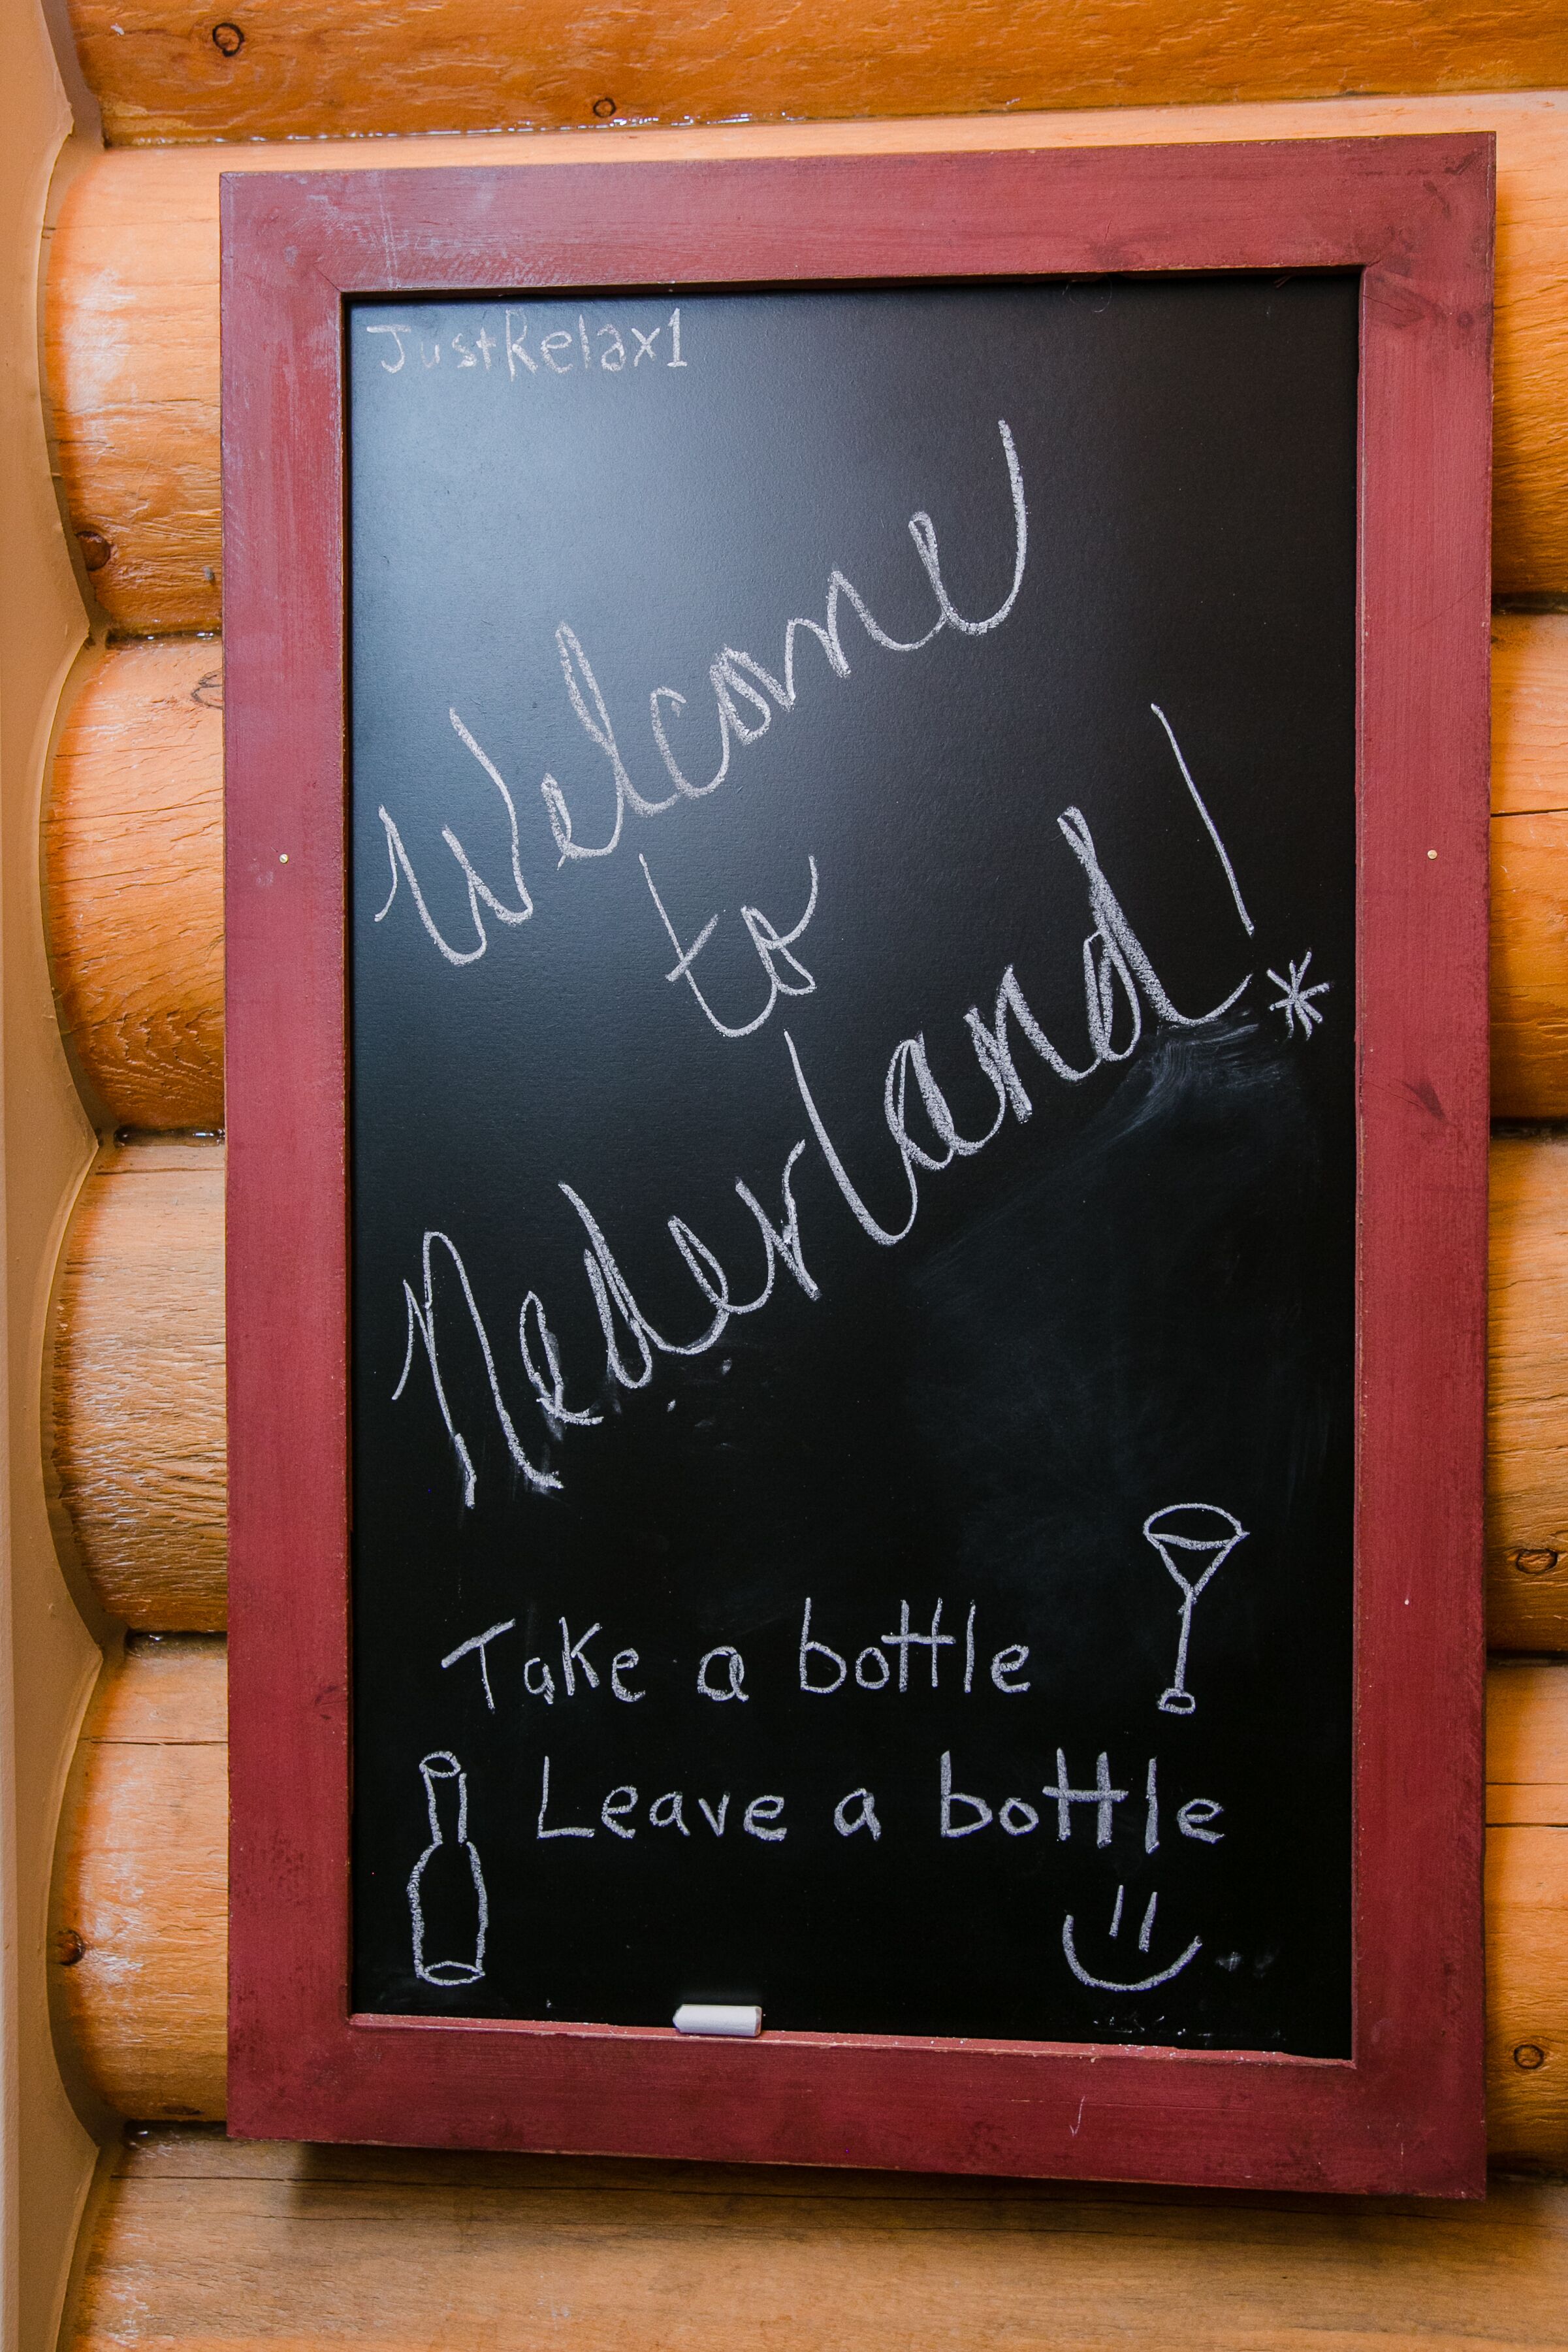 JustRelax1
Welcome
to
Nederland!
Take a bottle
Leave a bottle